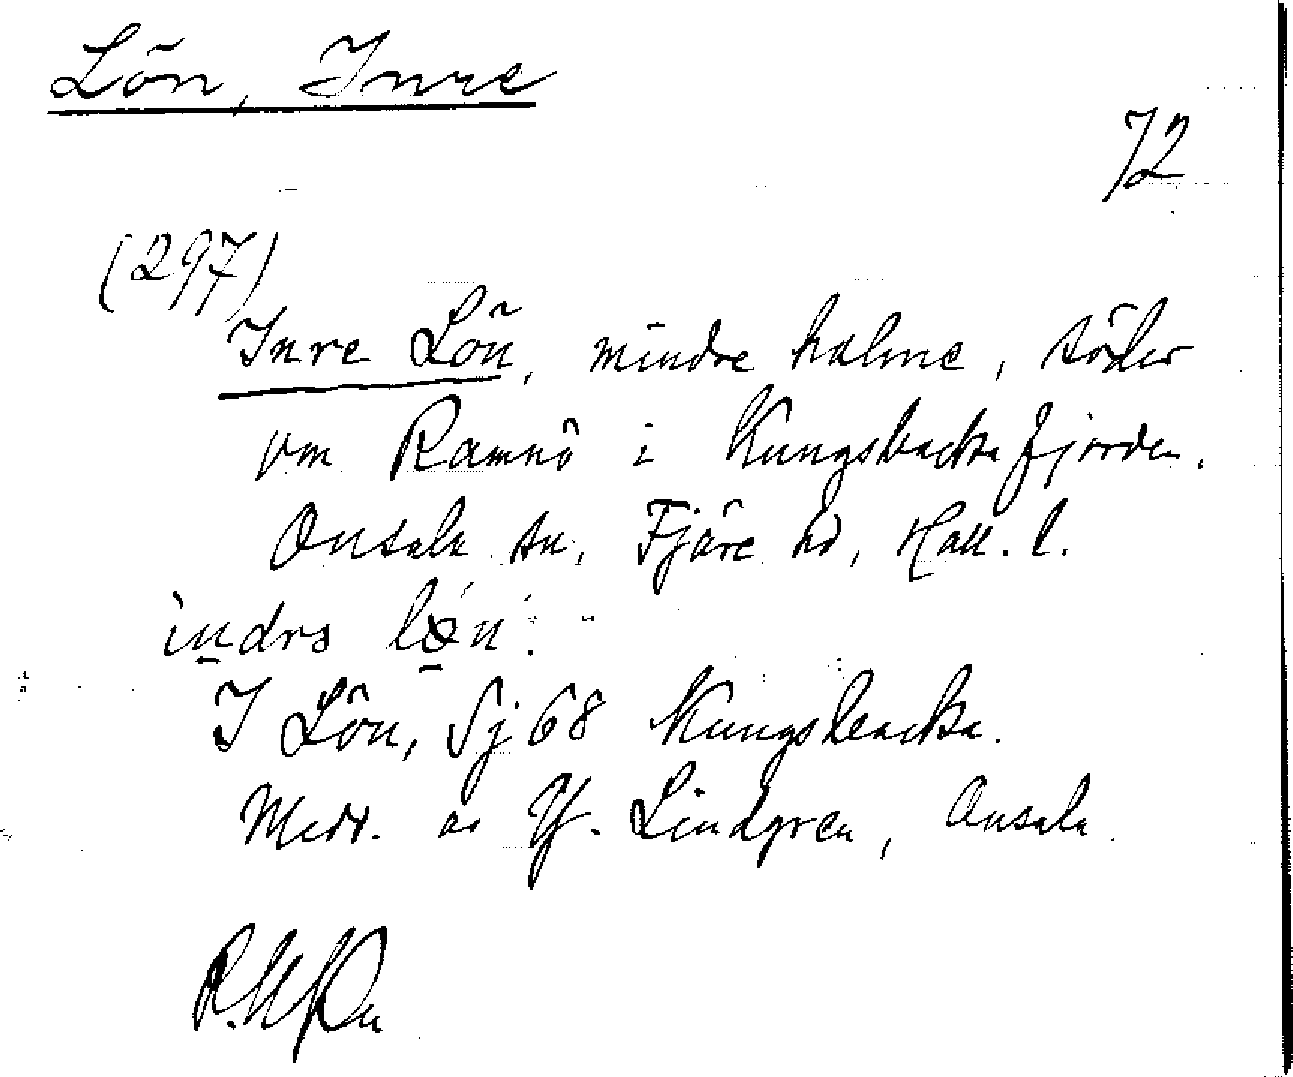 Lön, Inre
72
(297)
Inre Lön, mindre holme, söder
om Ramnö i Kungsbackafjorden.
Onsala sn, Fjäre hd, Hall. l.
indrə
I Lön, Sj 68 Kungsbacka.
Medd. av Y. Lindgren, Onsala.